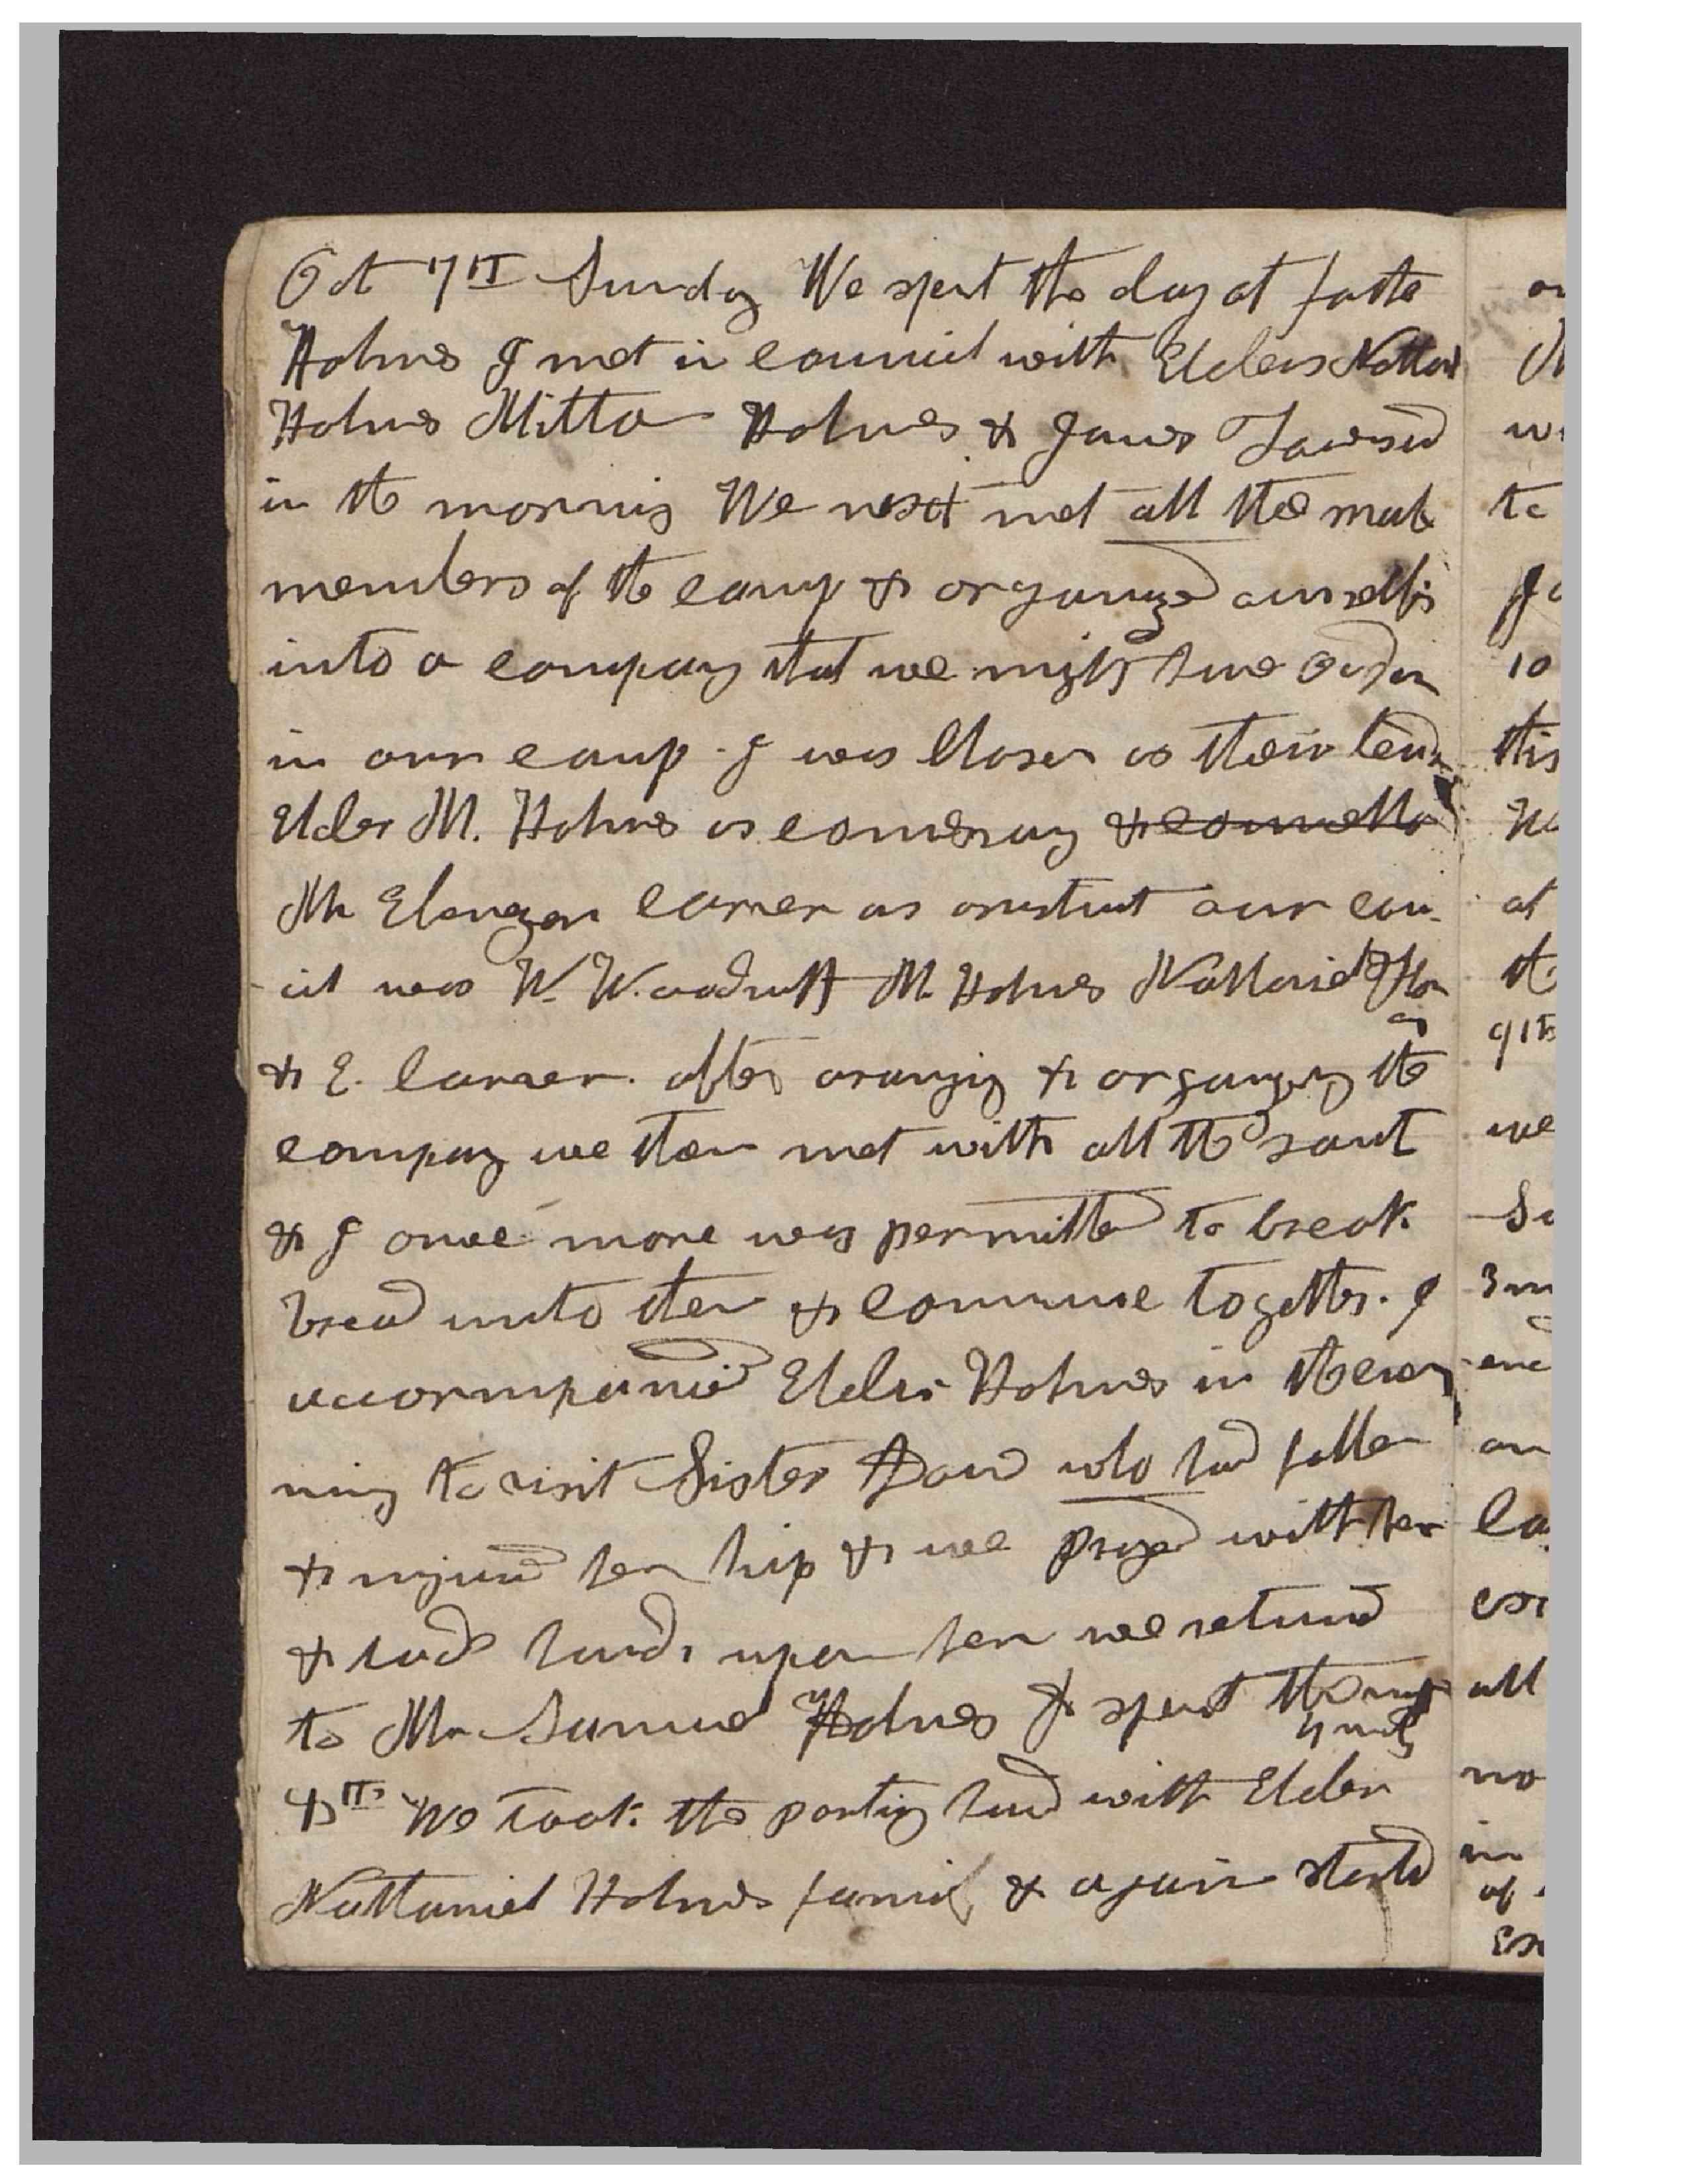 Oct 7th Sunday We spent the day at father
Holmes I met in council with Elders Nathan
Holmes Milton Holmes & James Townsend
in the morning We next met all the male
members of the camp & organized ourselves
into a company that we might have order
in our camp. I was chosen as their leader
Elder M. Holmes as commisary & councello
Mr Ebenezer Carver as asistant our coun-
cil was W. Woodruff M Holmes Nathaniel Thom
as
& E. Carver. after aranging & organizing the
company we then met with all the saint
& I once more was permitted to break
bread unto them & commune together. I
accormpanied Elder Holmes in the eve
ning to visit Sister Dow who had fallen
& injured her hip & we prayed with her
& laid hands upon her we returned
to Mr Samuel Holmes & spent the night
4 mils
8th We took the parting hand with Elder
Nathaniel Holmes family & again started
on
to
10
this
at
the
9th
we
3 m
and
all
no
in
of